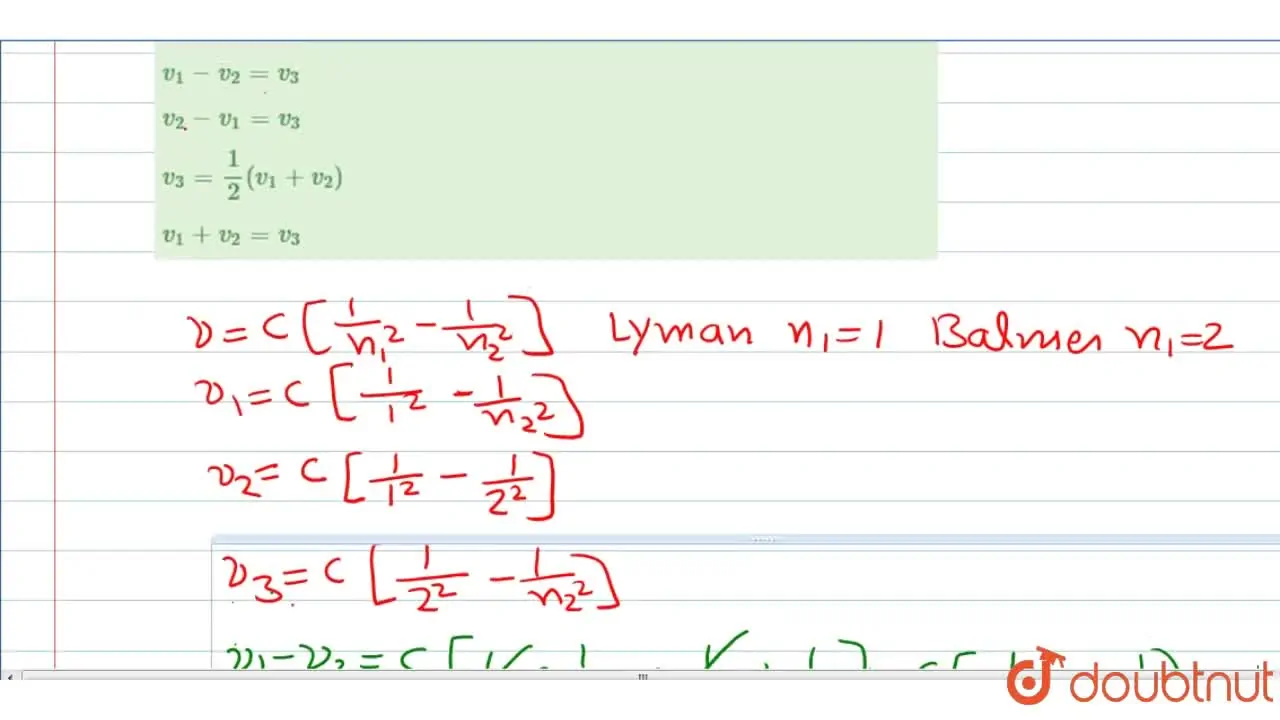 v₁ − v₂ = v₃
v₂ − v₁ = v₃
v₃ = 1/2 (v₁ + v₂)
v₁ + v₂ = v₃
ν = C [1/n₁² − 1/n₂²] Lyman n₁ = 1 Balmer n₁ = 2
ν₁ = C [1/1² − 1/n₂²]
ν₂ = C [1/1² − 1/2²]
ν₃ = C [1/2² − 1/n₂²]
ν₁ − ν₂ = C [
doubtnut